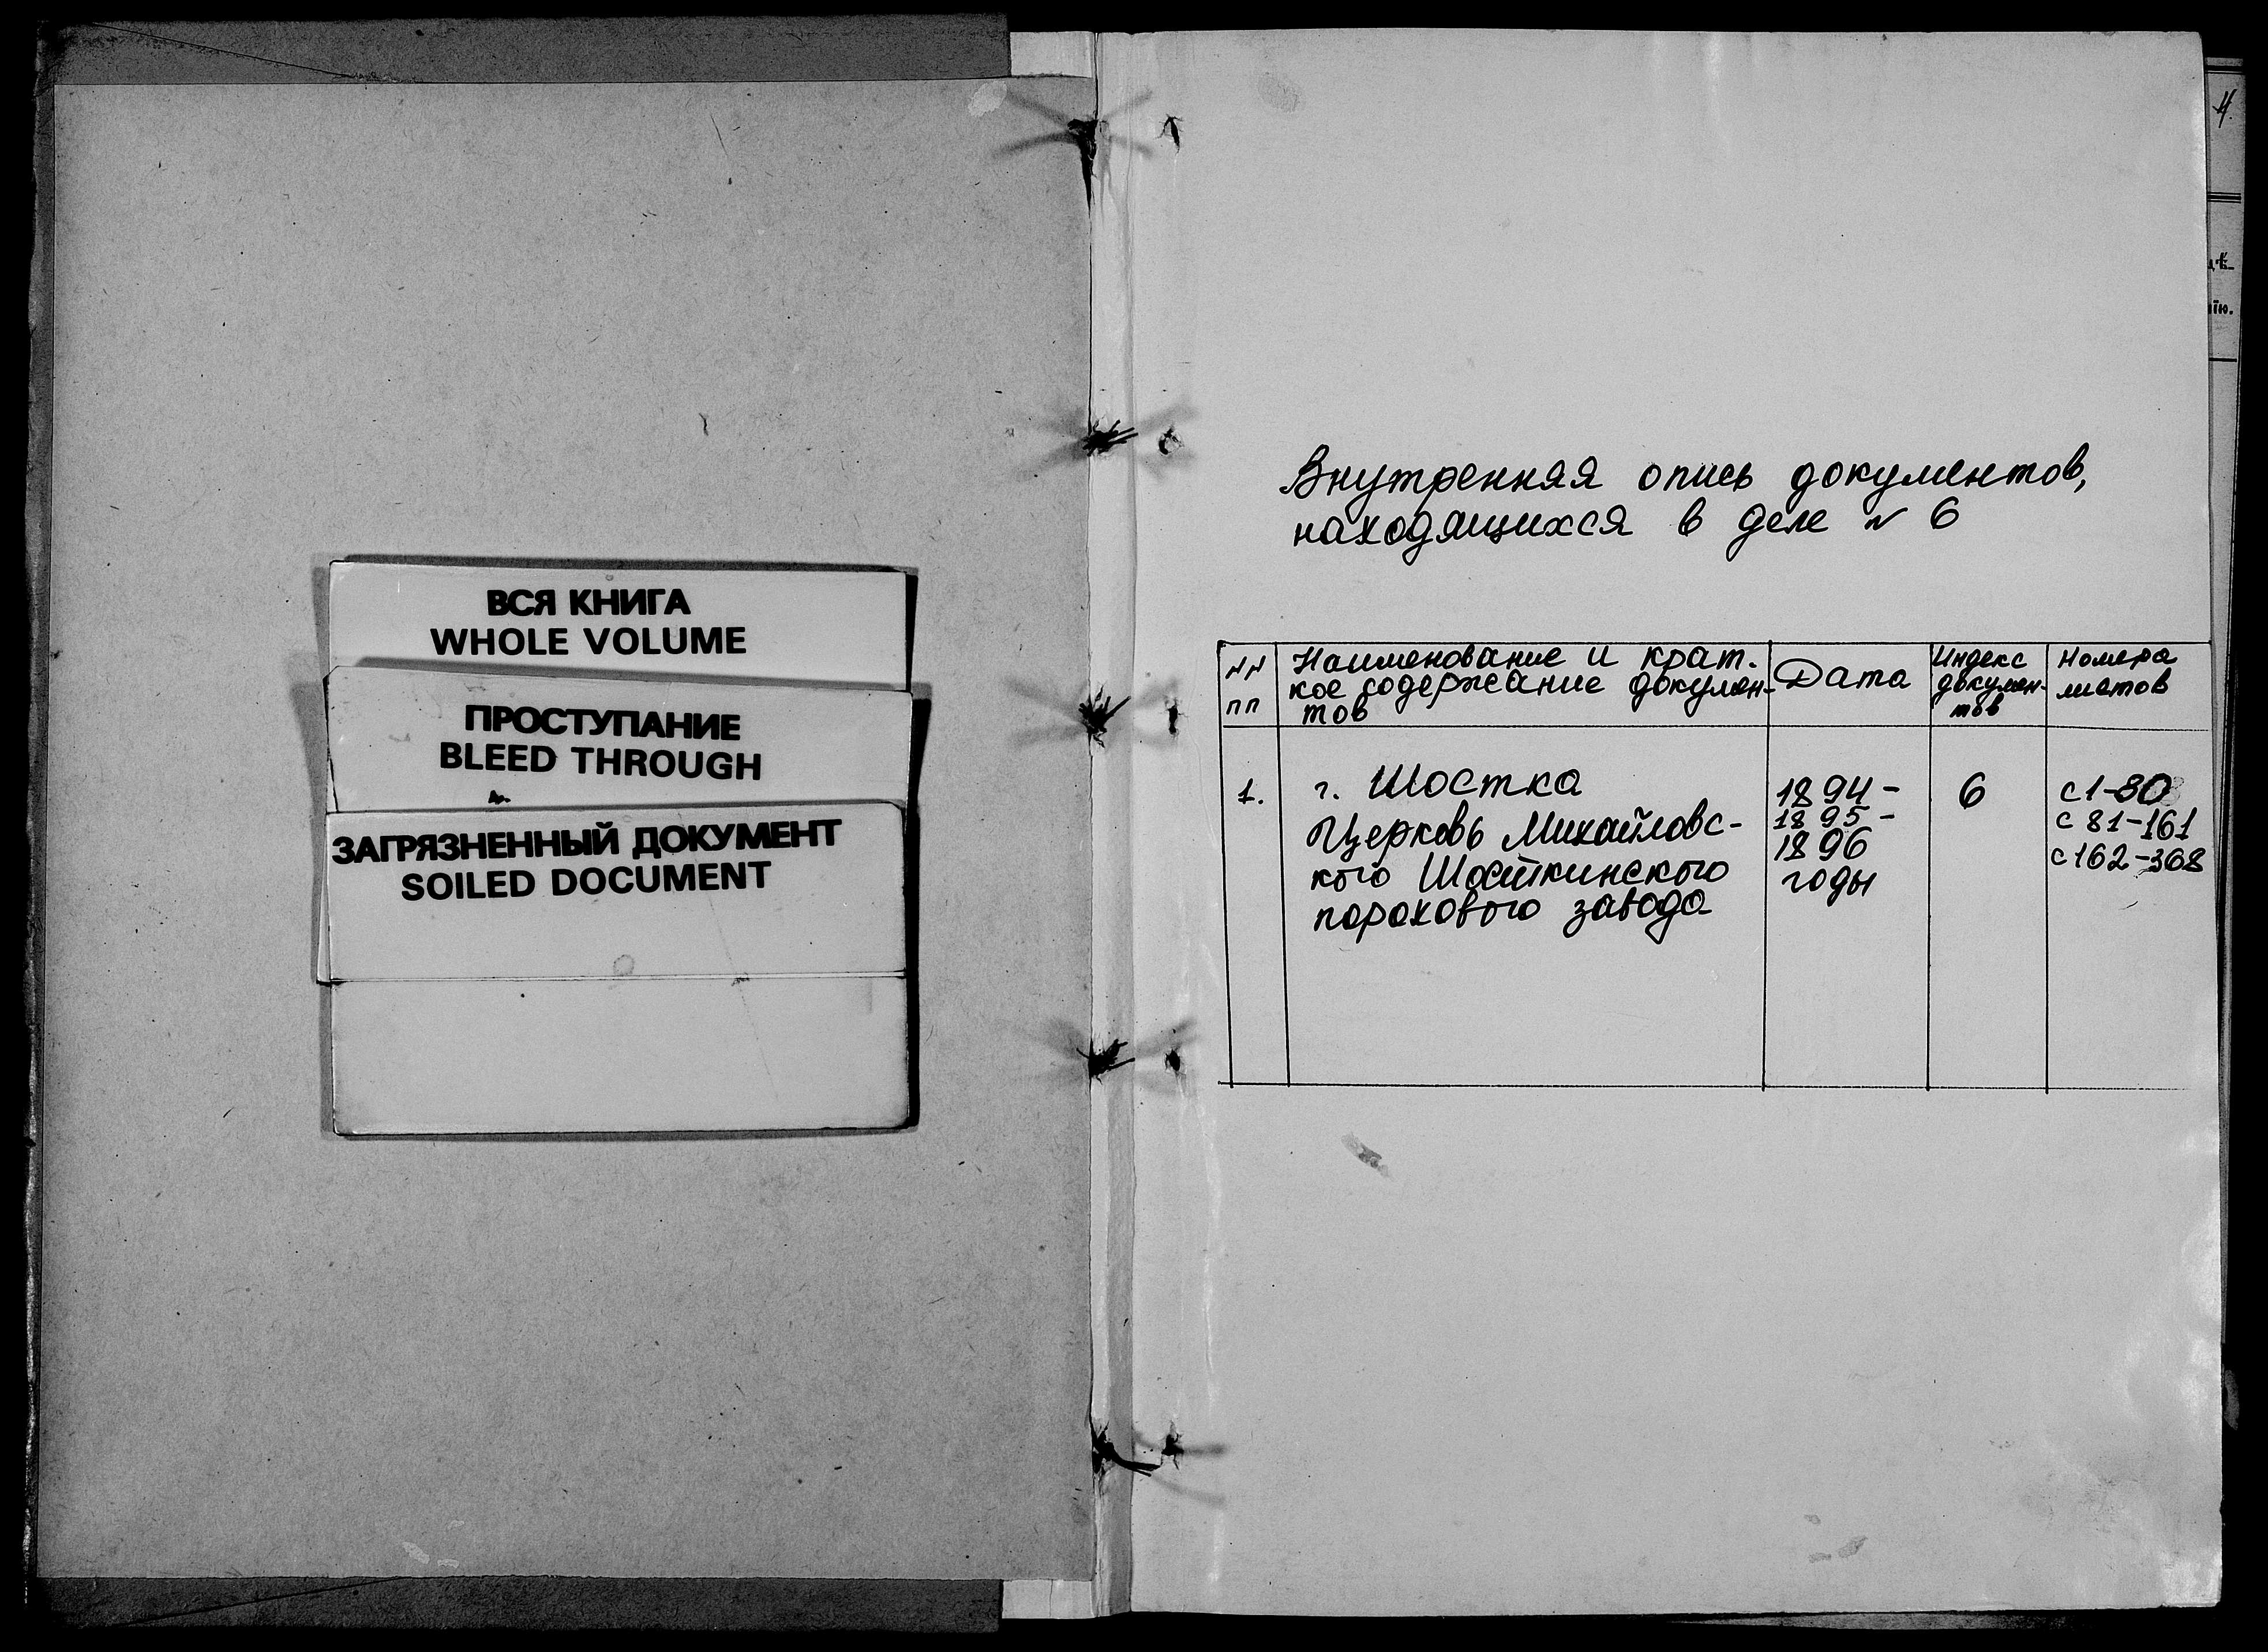 ВСЯ КНИГА
WHOLE VOLUME
ПРОСТУПАНИЕ
BLEED THROUGH
ЗАГРЯЗНЕННЫЙ ДОКУМЕНТ
SOILED DOCUMENT
Внутренняя опись документов,
находящихся в деле № 6
№№ пп
Наименование и крат-
кое содержание докумен-
тов
Дата
Индекс
докумен-
тов
Номера
листов
1.
г. Шостка
Церковь Михайловс-
кого Шосткинского
порохового завода
1894-
1895-
1896
годы
6
с 1-80
с 81-161
с 162-368
4.